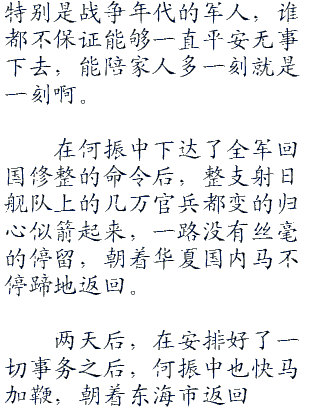 特别是战争年代的军人，谁
都不保证能够一直平安无事
下去，能陪家人多一刻就是
一刻啊。
在何振中下达了全军回
国修整的命令后，整支射日
舰队上的几万官兵都变的归
心似箭起来，一路没有丝毫
的停留，朝着华夏国内马不
停蹄地返回。
两天后，在安排好了一
切事务之后，何振中也快马
加鞭，朝着东海市返回